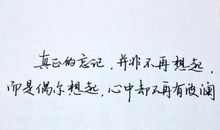 真正的忘记，并非不再想起，
而是偶尔想起，心中却不再有波澜